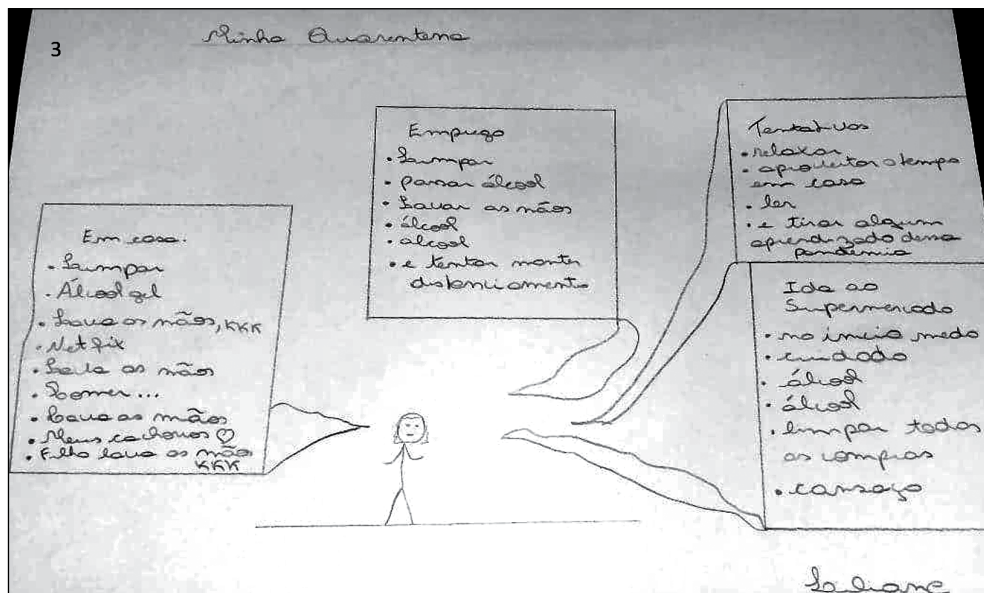 3
Minha Quarentena
Em casa.
• Limpar
• Álcool gel
• Lava as mãos, KKK
• Netflix
• Lava as mãos
• Comer...
• Lava as mãos
• Meus cachorros ♡
• Filho lava as mãos
KKK
Emprego
• Limpar
• passar álcool
• Lavar as mãos
• álcool
• alcool
• e tentar manter
distanciamento
Tentativas
• relaxar
• aproveitar o tempo
em casa
• ler
• e tirar algum
aprendizado dessa
pandemia
Ida ao
Supermercado
• no início medo
• cuidado
• álcool
• álcool
• limpar todas
as compras
• cansaço